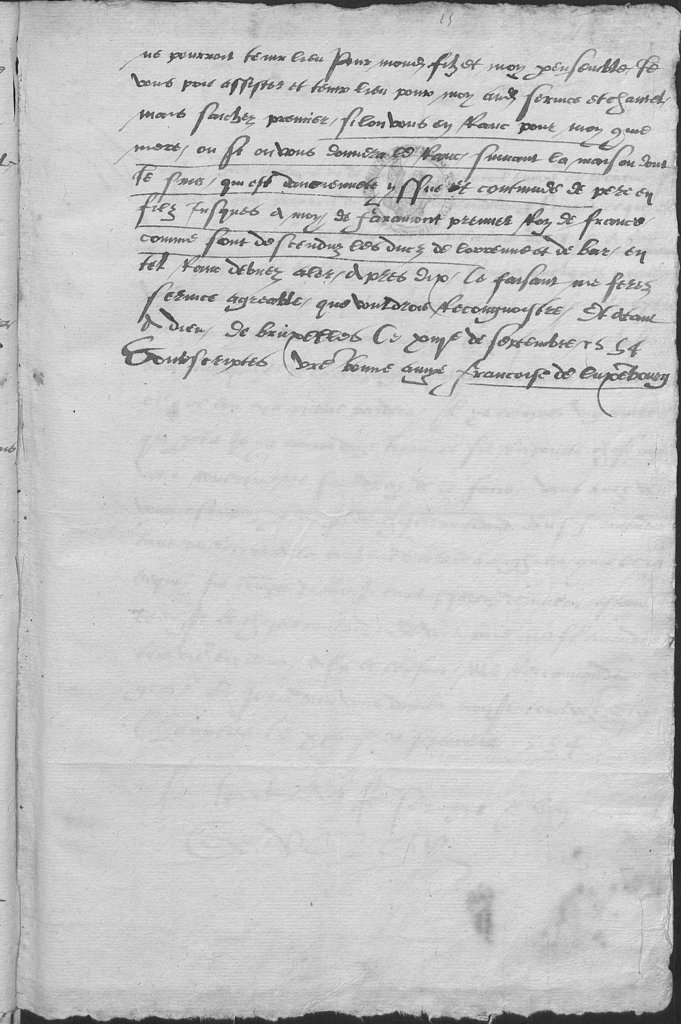 15
ne pourroit tenir lieu pour mond. filz et moy ensemble, Je
vous prie assister et tenir lieu pour moy aud. service et chantel
mais sachez premier, si l'on vous en Ranc pour moy que
mere, ou si on vous donnera le Ranc, suivant la maison dont
Je suis, qui est anciennete yssue et continuée de pere en
filz Jusques a moy, de faramont premier Roy de france,
comme sont descenduz les ducz de lorrenne et de bar, en
tel Ranc debvez aler, apres dix, Ce faisant me ferez
service agreable, que vouldrois Recongnoistre, Et atant
A dieu, de bruxelles Ce xiiije de septembre 1554
Soubscriptes, vre bonne amye francoise de luxembourg